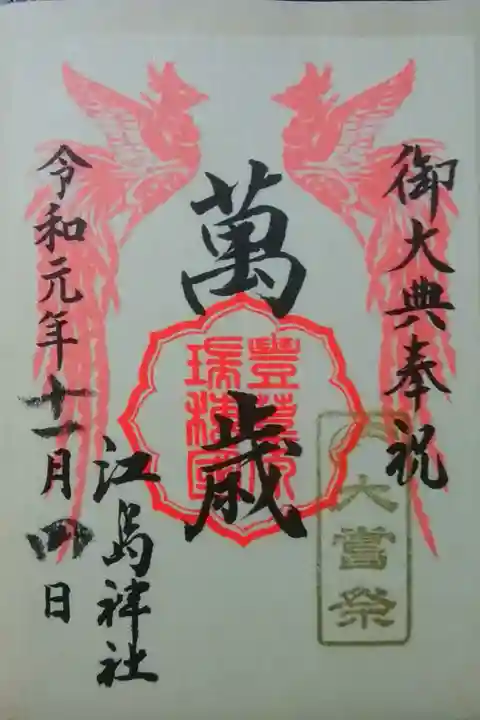 御大典奉祝
萬歳
豐葦原
瑞穂國
大嘗祭
令和元年十一月四日
江島神社